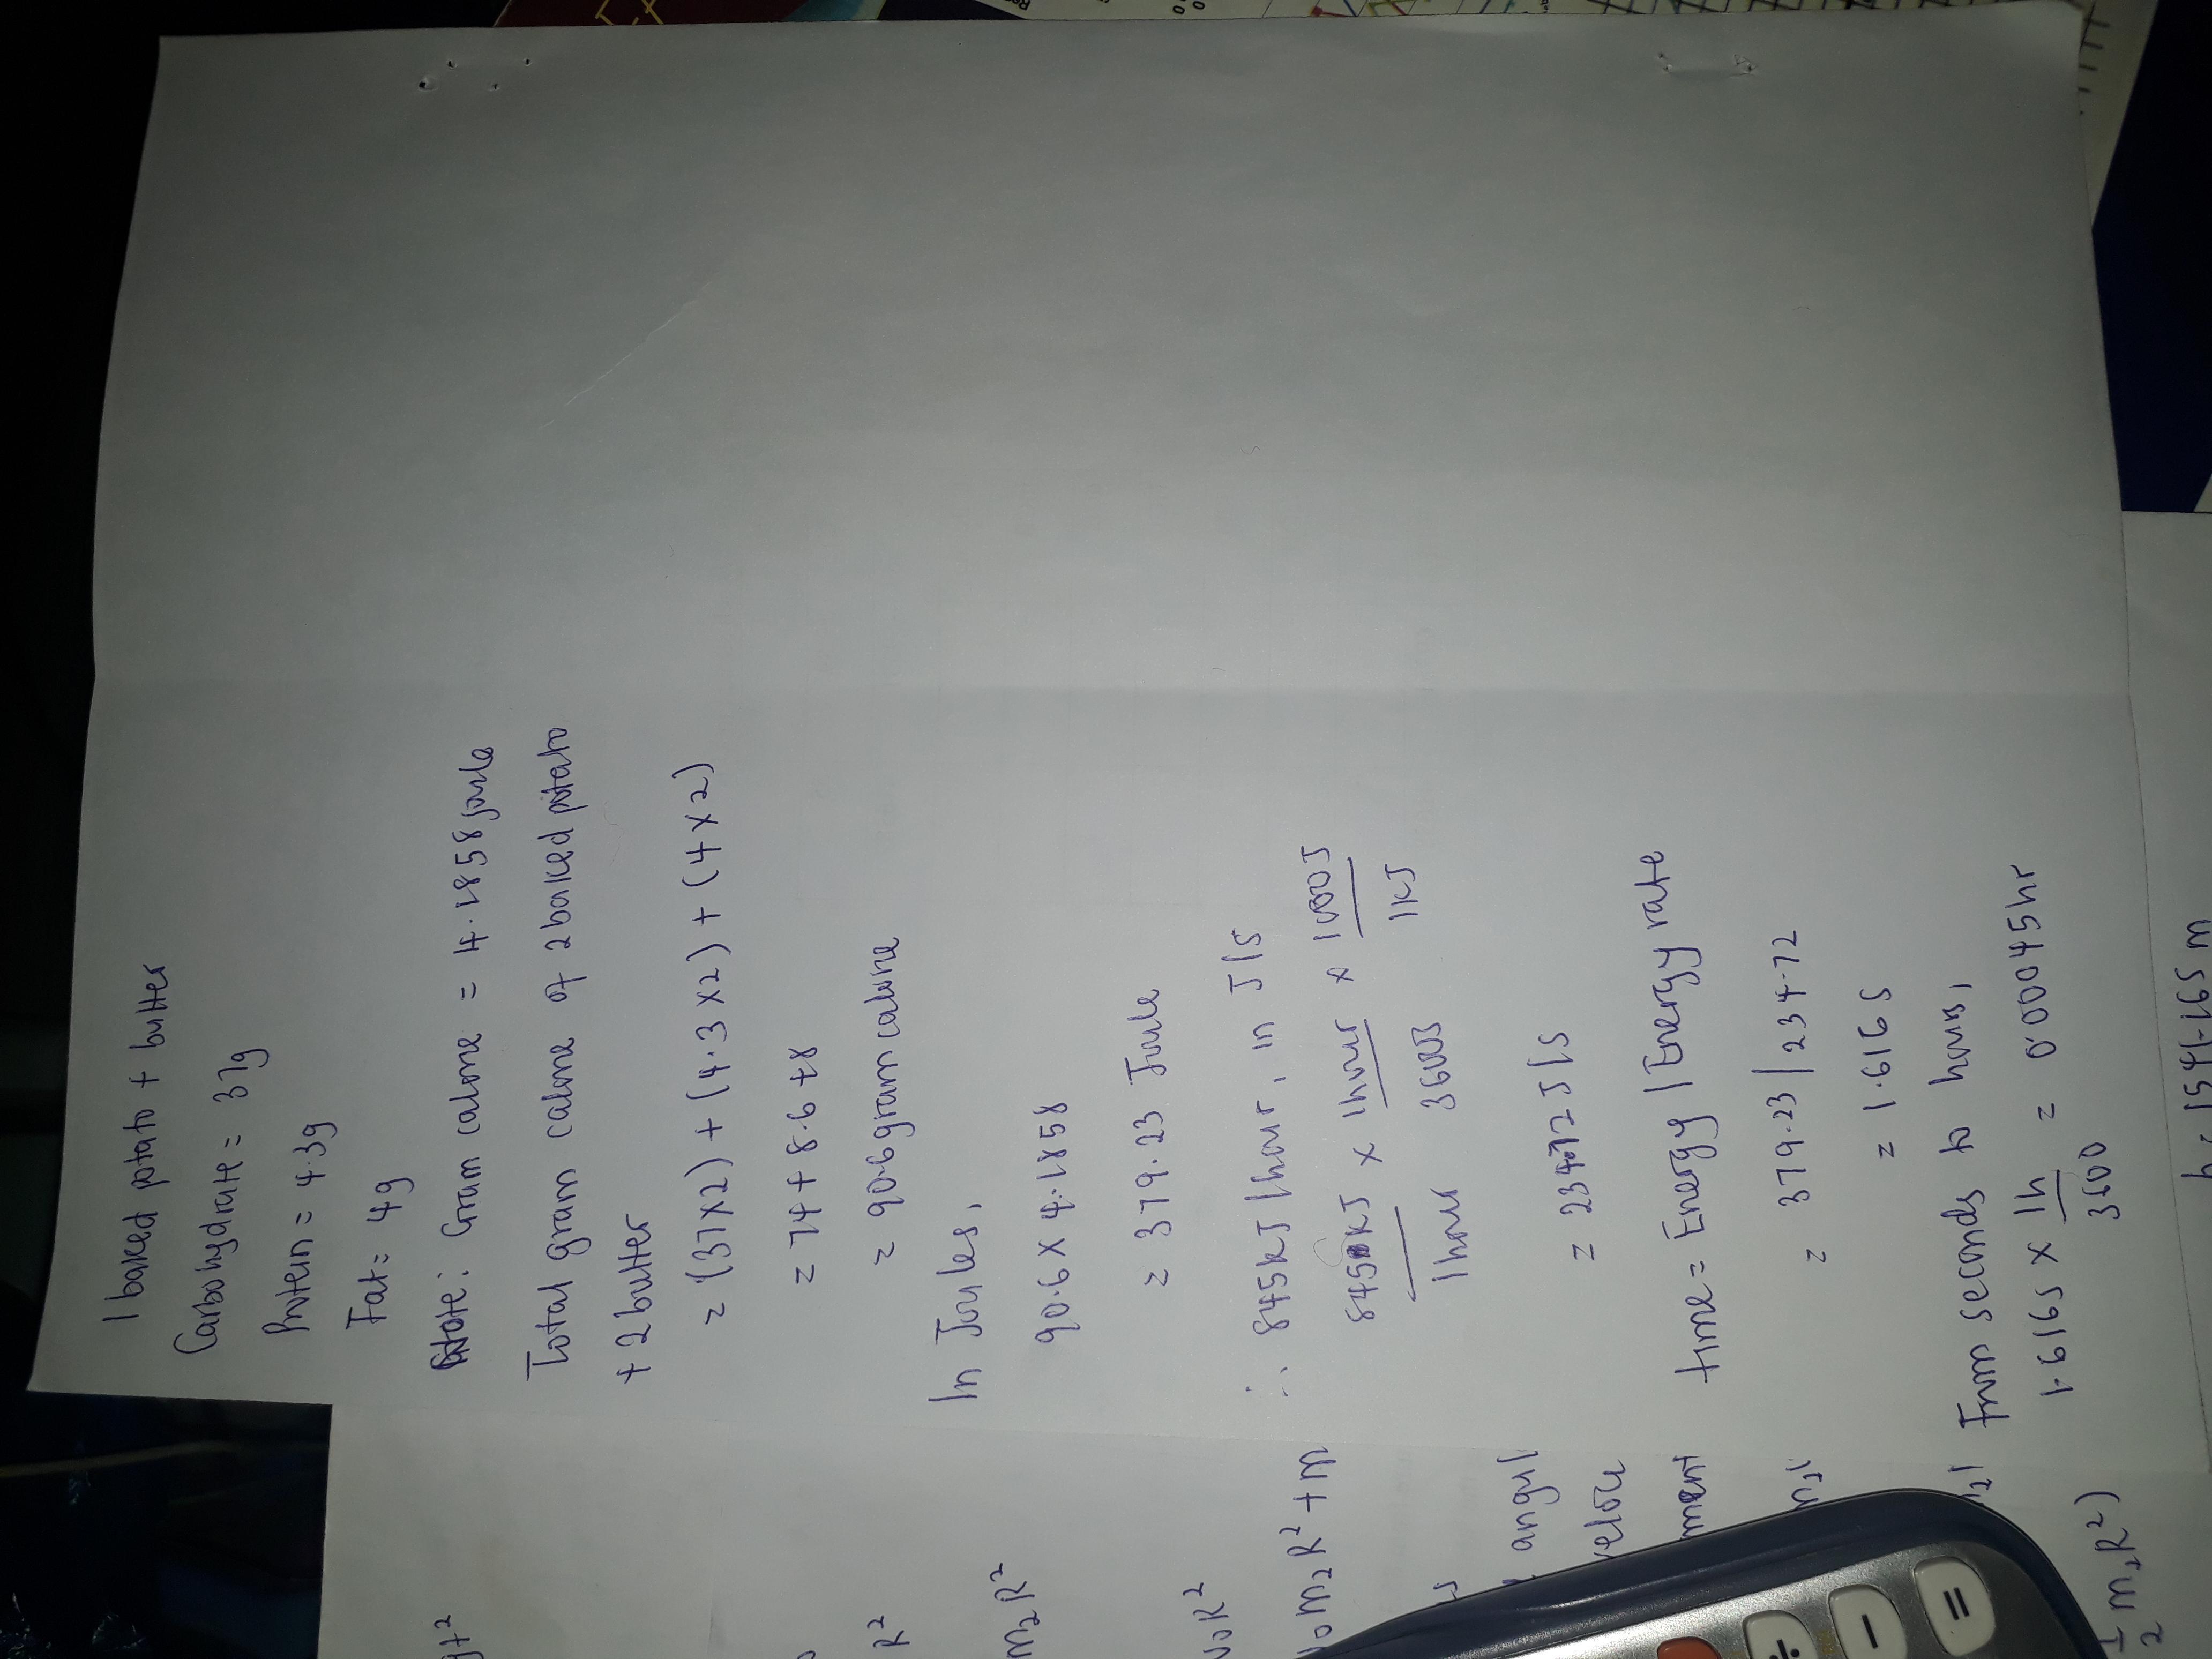 1 baked potato + butter
Carbohydrate = 37g
Protein = 4.3g
Fat = 4g
Note: Gram calorie = 4.1858 joule
Total gram calorie of 2 baked potato
+ 2 butter
= (37x2) + (4.3x2) + (4x2)
= 74 + 8.6 + 8
= 90.6 gram calorie
In Joules,
90.6 x 4.1858
= 379.23 Joule
∴ 845kJ/hour, in J/s
845kJ x 1hour x 1000J
1hour 3600s 1kJ
= 234.72 J/s
time = Energy / Energy rate
= 379.23 / 234.72
= 1.616s
From seconds to hours,
1.616s x 1h = 0.00045hr
3600
R²
m₂R²
m₂R² + m
angul
veloci
ment
½ m₁R²)
= 1.165 m
÷
−
=